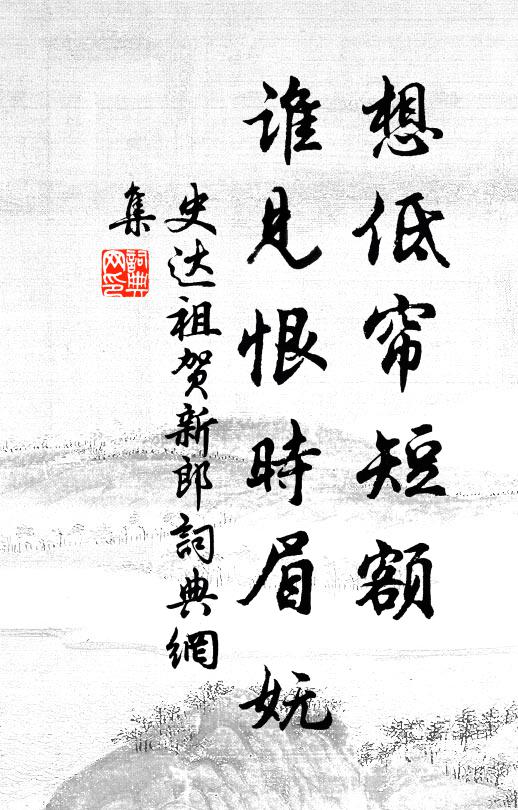 想低帘短额
谁见恨時眉妩
史达祖贺新郎詞典網
集
詞典网印